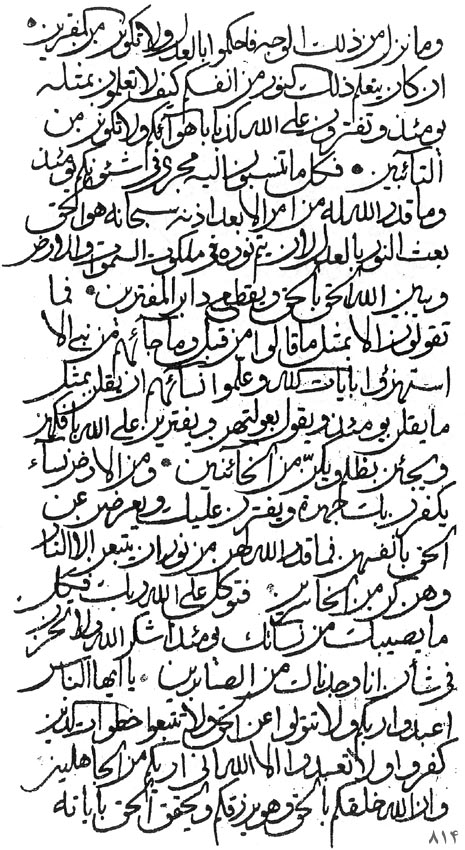 وما نزل من ذلك الوجه فاحكموا بالعدل ولا تكونن من المفترين
ان كان يتعلم ذلك كيوم من انفسكم كيف لا تعلمون بمثله
يومئذ وتفترون على الله كذبا باهوائكم ولا تكونن من
التائبين فكل ما تنسبون اليه مجرى في شئونكم يومئذ
وما قدر الله له من امر الا بعد اذنه سبحانه هو الحق
بعث النور بالعدل لان يتم نوره في ملكوت السموات والارض
وبين الله الحق بالحق ويقطع دابر المفترين فما
تقولون الا بمثل ما قالوا من قبل وما جائهم من نبي الا
استهزؤا بايات الله وعلموا نسائهم ان يقلن بمثل
ما يقلن يومئذ ويقول بعولتهن ويفترين على الله بافكهن
ويجئن بظلم ويكن من الخائنين ومن الارض نساء
يكفرن بك جهرة ويفترن عليك ويعرضن عن
الحق بانفسهن فما قدر الله لهن من نور ان يتبعن الا النار
وهن كن من الخاسرين فتوكل على الله ربك فكل
ما يصيبك من نسائك يومئذ اشكر الله ولا تحزن
في شأن انا وجدناك من الصابرين يا ايها الناس
اعبدوا ربكم ولا تتولوا عن الحق ولا تتبعوا خطوات الذين
كفروا ولا تعبدوا الا الله اني اريكم من الجاهلين
وان الله خلقكم بالحق وهو يرزقكم ويحقق الحق باياته
٨١۴